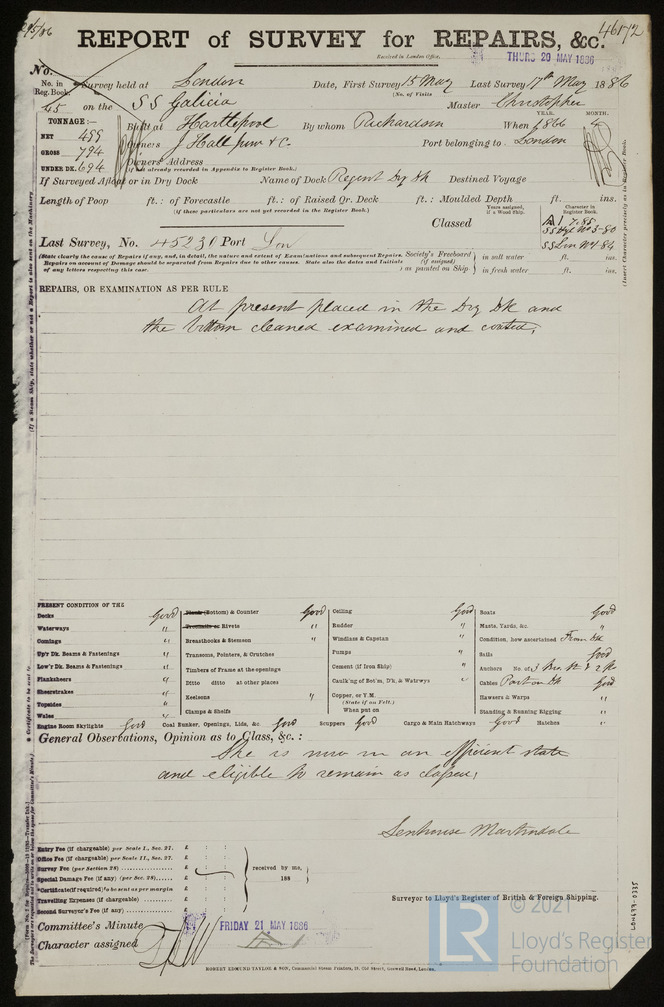 REPORT of SURVEY for REPAIRS, &c. 46172
Received in London Office, THURS 20 MAY 1886
No.
No. in Reg. Book. Survey held at London Date, First Survey 15 May Last Survey 17th May 1886
(No. of Visits
45 on the SS Galicia Master Christopher
TONNAGE:— YEAR. MONTH.
NET 499 Built at Hartlepool By whom Richardson When 1866 4
GROSS 794 Owners J Hall junr & Co. Port belonging to London
UNDER DK. 694 Owners Address
(If not already recorded in Appendix to Register Book.)
If Surveyed Afloat or in Dry Dock Name of Dock Regent Dry Dk Destined Voyage
Length of Poop ft.: of Forecastle ft.: of Raised Qr. Deck ft.: Moulded Depth ft. ins.
(If these particulars are not yet recorded in the Register Book.) Years assigned, if a Wood Ship. Character in Register Book.
Classed A1 7.85
SS Hpl No 3-80
Last Survey, No. 45230 Port Lon SS Lon No 4 84
(State clearly the cause of Repairs if any, and, in detail, the nature and extent of Examinations and subsequent Repairs. Society's Freeboard in salt water ft. ins.
Repairs on account of Damage should be separated from Repairs due to other causes. State also the dates and Initials (if assigned)
of any letters respecting this case. as painted on Ship in fresh water ft. ins.
REPAIRS, OR EXAMINATION AS PER RULE
At present placed in the Dry Dk and
the bottom cleaned examined and coated,
PRESENT CONDITION OF THE
Decks Good (Bottom) & Counter Good Ceiling Good Boats Good
Waterways " Rivets " Rudder " Masts, Yards, &c. "
Comings " Breasthooks & Stemson " Windlass & Capstan " Condition, how ascertained From Dk
Up'r Dk. Beams & Fastenings " Transoms, Pointers, & Crutches Pumps " Sails Good
Low'r Dk. Beams & Fastenings " Timbers of Frame at the openings Cement (if Iron Ship) " Anchors No. of 3
Planksheers " Ditto ditto at other places Caulk'ng of Bot'm, D'k, & Watrwys " Cables Part on Dk Good
Sheerstrakes " Keelsons " Copper, or Y.M. Hawsers & Warps "
Topsides " Clamps & Shelfs (State if on Felt.) Standing & Running Rigging "
Wales " When put on
Engine Room Skylights Good Coal Bunker, Openings, Lids, &c. Good Scuppers Good Cargo & Main Hatchways Good Hatches "
General Observations, Opinion as to Class, &c.:
She is now in an efficient state
and eligible to remain as classed,
Senhouse Martindale
Entry Fee (if chargeable) per Scale I., Sec. 27. £ : :
Office Fee (if chargeable) per Scale II., Sec. 27. £ : :
Survey Fee (per Section 28) £ : : received by me,
Special Damage Fee (if any) (per Sec. 28) £ : : 188
Certificate (if required) to be sent as per margin £ : :
Travelling Expenses (if chargeable) £ : :
Second Surveyor's Fee (if any) £ : :
Surveyor to Lloyd's Register of British & Foreign Shipping.
Committee's Minute FRIDAY 21 MAY 1886
Character assigned
ROBERT EDMUND TAYLOR & SON, Commercial Steam Printers, 19, Old Street, Goswell Road, London.
LON699-0335
© 2021
LR Lloyd's Register
Foundation